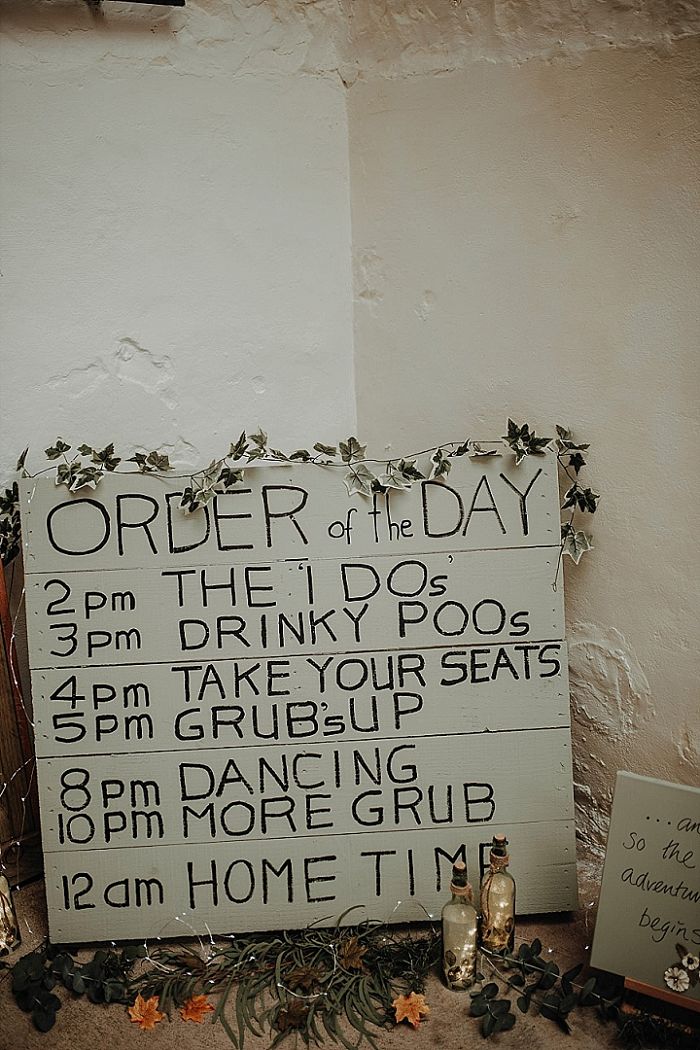 ORDER of the DAY
2pm THE 'I DOs'
3pm DRINKY POOs
4pm TAKE YOUR SEATS
5pm GRUB'sUP
8pm DANCING
10pm MORE GRUB
12am HOME TIME
...an
so the
adventur
begins